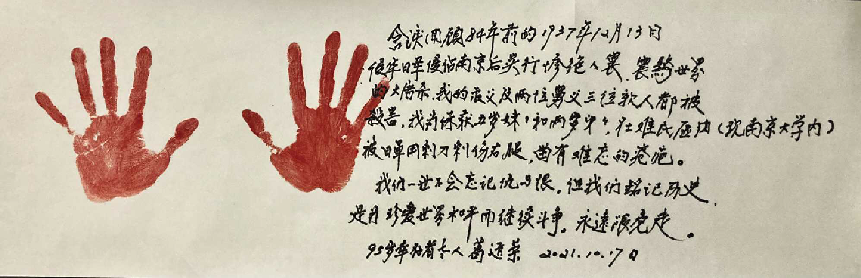 含泪回顾84年前的1937年12月13日
侵华日军侵占南京后实行惨绝人寰、震惊世界
的大屠杀,我的叔父及两位舅父三位亲人都被
杀害,我为保护五岁妹妹和两岁弟弟,在难民区内(现南京大学内)
被日军用刺刀刺伤右腿,留有难忘的疮疤。
我们一世不会忘记仇与恨,但我们铭记历史
是为珍爱世界和平而继续斗争,永远跟党走。
95岁幸存者老人葛道荣 2021.10.17日